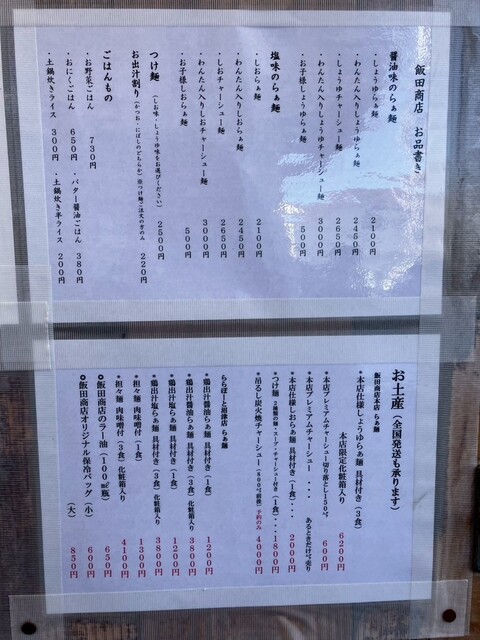 飯田商店 お品書き
醤油味のらぁ麺
・しょうゆらぁ麺 2100円
・わんたん入りしょうゆらぁ麺 2450円
・しょうゆチャーシュー麺 2650円
・わんたん入りしょうゆチャーシュー麺 3000円
・お子様しょうゆらぁ麺 500円
塩味のらぁ麺
・しおらぁ麺 2100円
・わんたん入りしおらぁ麺 2450円
・しおチャーシュー麺 2650円
・わんたん入りしおチャーシュー麺 3000円
・お子様しおらぁ麺 500円
つけ麺 (しお味・しょうゆ味をお選びください) 2500円
お出汁割り (かつお・にぼしのどちらか)※つけ麺ご注文の方のみ 220円
ごはんもの
・お野菜ごはん 730円
・おにくごはん 650円 ・バター醤油ごはん 380円
・土鍋炊きライス 300円 ・土鍋炊き半ライス 200円
お土産(全国発送も承ります)
飯田商店本店 らぁ麺
・本店仕様しょうゆらぁ麺 具材付き(3食)
本店限定化粧箱入り 6200円
・本店プレミアムチャーシュー切り落とし150g 600円
・本店プレミアムチャーシュー ・・・ あるときだけ♡売り
・本店仕様しおらぁ麺 具材付き(1食)・・・ 2000円
・つけ麺 2種類の麺・スープ・チャーシュー付き(1食)・・・1800円
・吊るし炭火焼チャーシュー(800g前後)予約のみ 4000円
ららぽーと沼津店 らぁ麺
・鶏出汁醤油らぁ麺 具材付き(1食) 1200円
・鶏出汁醤油らぁ麺 具材付き(3食)化粧箱入り 3800円
・鶏出汁塩らぁ麺 具材付き(1食) 1200円
・鶏出汁塩らぁ麺 具材付き(3食)化粧箱入り 3800円
・担々麺 肉味噌付(1食) 1300円
・担々麺 肉味噌付(3食)化粧箱入り 4100円
✪飯田商店のラー油(100㎖瓶) 650円
✪飯田商店オリジナル保冷バッグ(小) 600円
(大) 850円